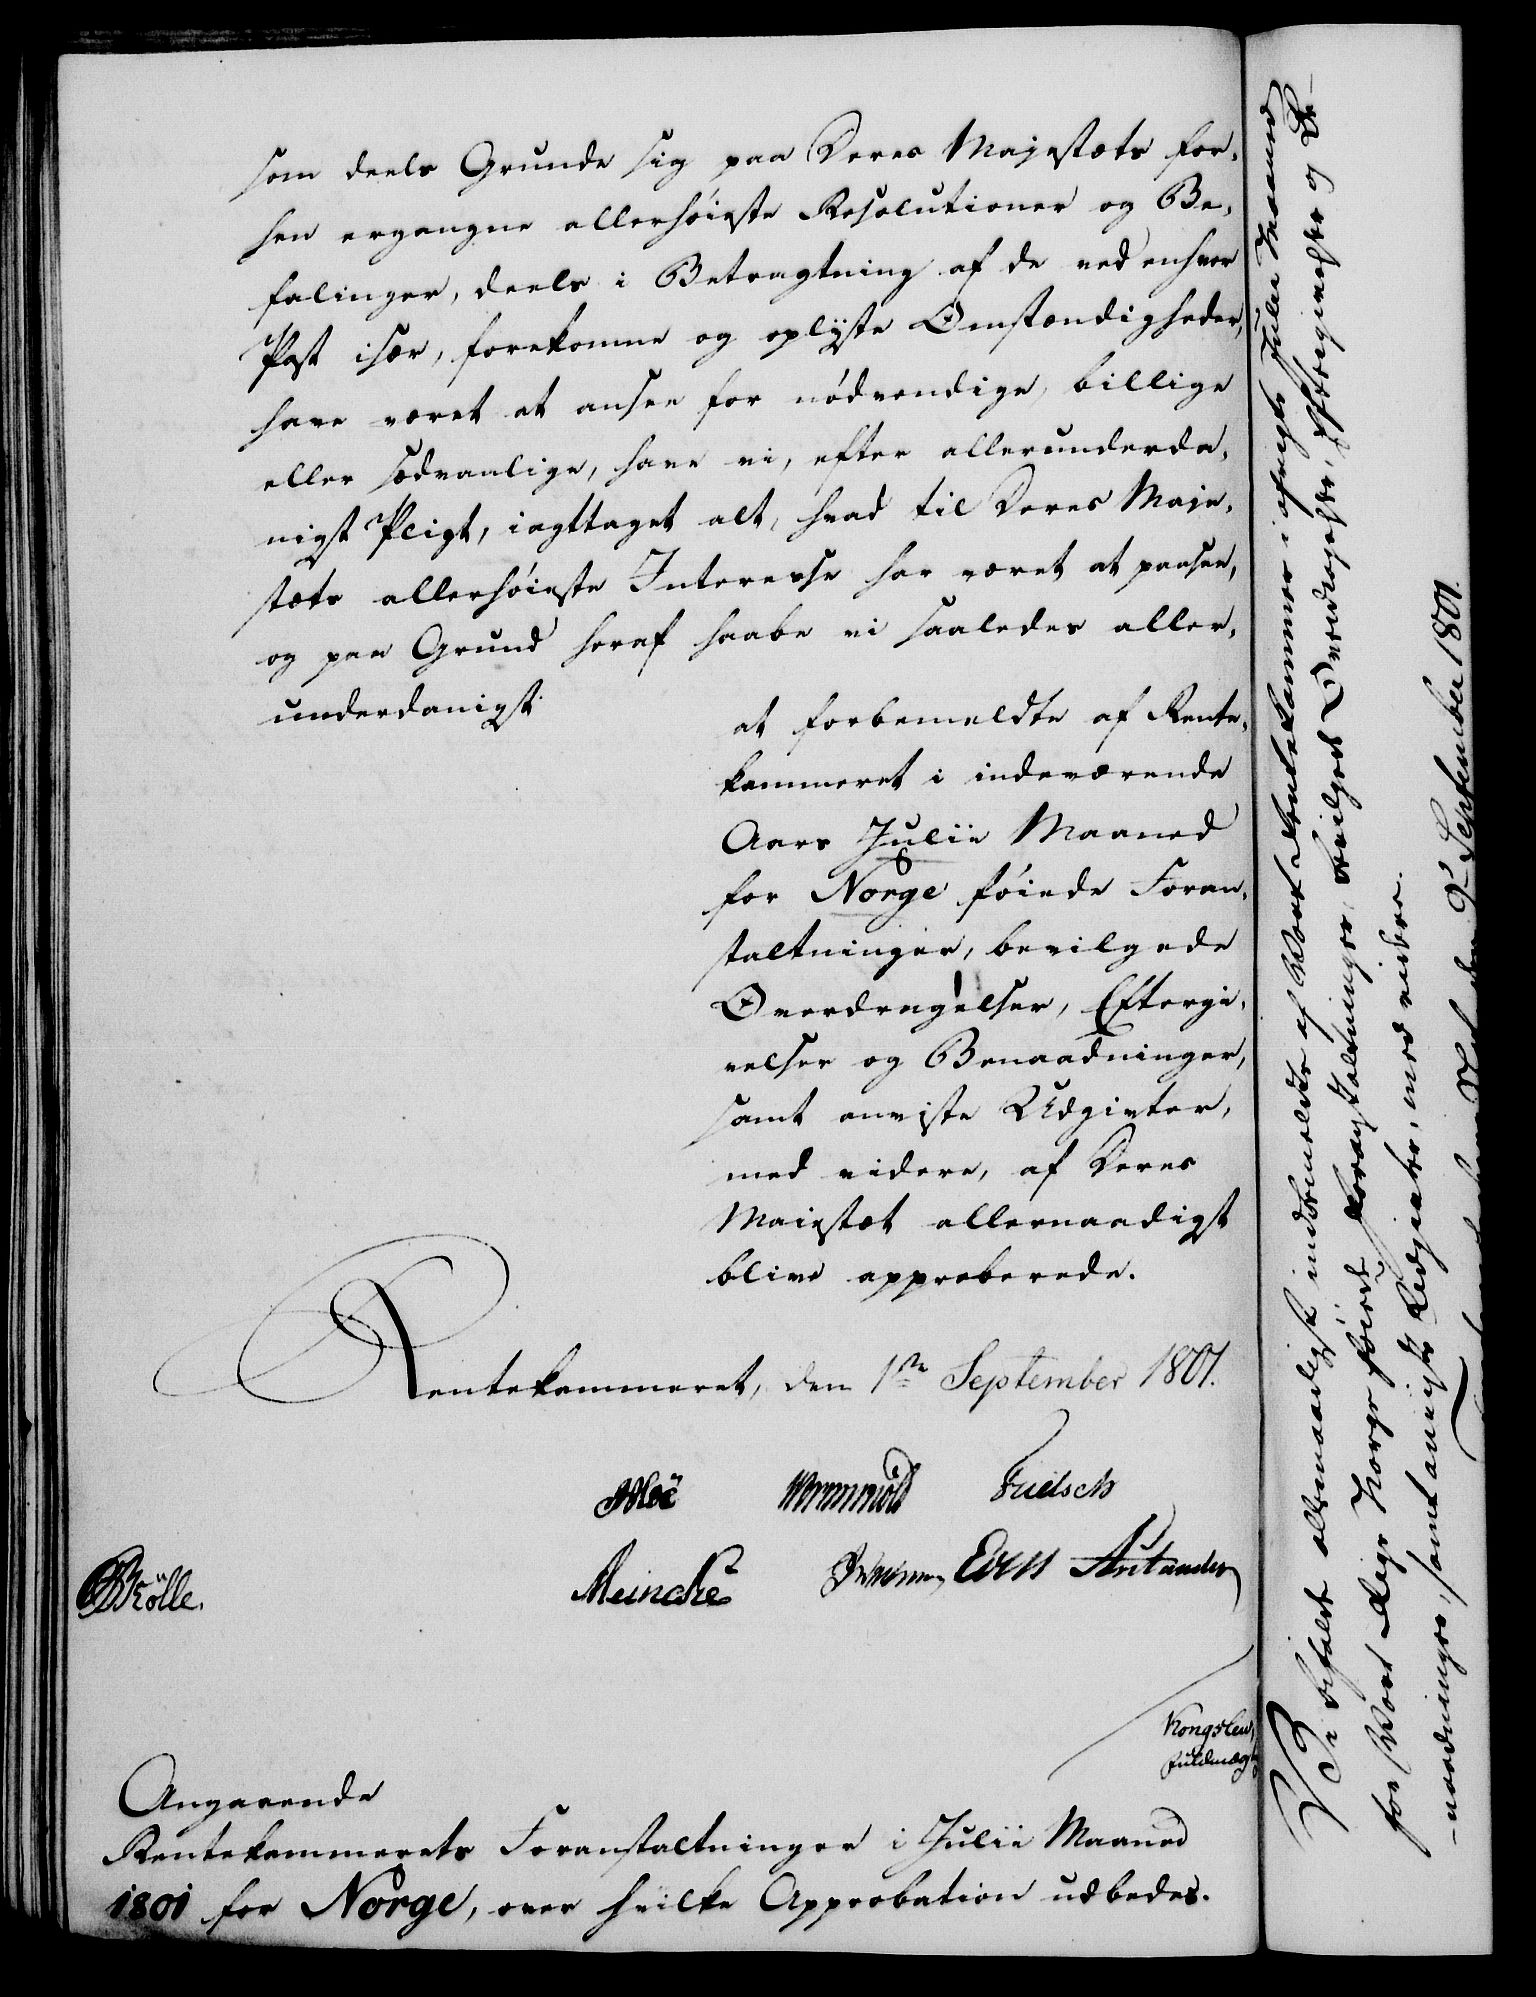 som deels Grunde sig paa Deres Majestæts for-
hen ergangne allerhøieste Resolutioner og Be-
falinger, deels i Betragtning af de ved enhver
Post især, forekomne og oplyste Omstændigheder,
have været at ansee for nødvendige, billige
eller sædvanlige, have vi, efter allerunderda-
nigst Pligt, iagttaget alt, hvad til Deres Maje-
stæts allerhøieste Interesse har været at paasee,
og paa Grund heraf haabe vi saaledes aller-
underdanigst
at forbemeldte af Rente-
kammeret i indeværende
Aars Julii Maaned
for Norge føiede Foran-
staltninger, bevilgede
Overdragelser, Eftergi-
velser og Benaadninger,
samt anviste Udgivter,
med videre, af Deres
Maiestæt allernaadigst
blive approberede.
Rentekammeret, den 1ste September 1801.
Wormskiold
Meincke
Rölle.
Kongslew,
Fuldmægtig
Angaaende
Rentekammerets Foranstaltninger i Julii Maaned
1801 for Norge, over hvilke Approbation udbedes.
Vi befalet allernaadigst indbemeldte af Vort Rentekammer i afvigte Julii Maaned
for Vort Rige Norge føiede Foranstaltninger, bevilgede Overdragelser, Eftergivelser og Be-
-naadninger, samt anviste Udgivter, med videre.
den 9de September 1801.